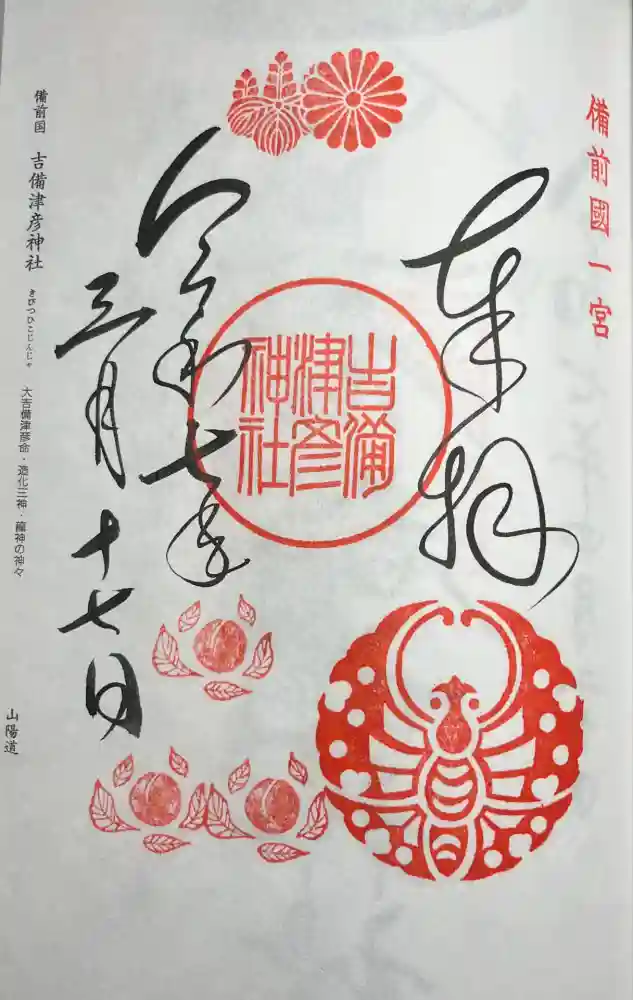 備前國一宮
奉拝
吉備
津彦
神社
令和七年
三月十七日
備前国 吉備津彦神社 きびつひこじんじゃ 大吉備津彦命・造化三神・龍神の神々
山陽道